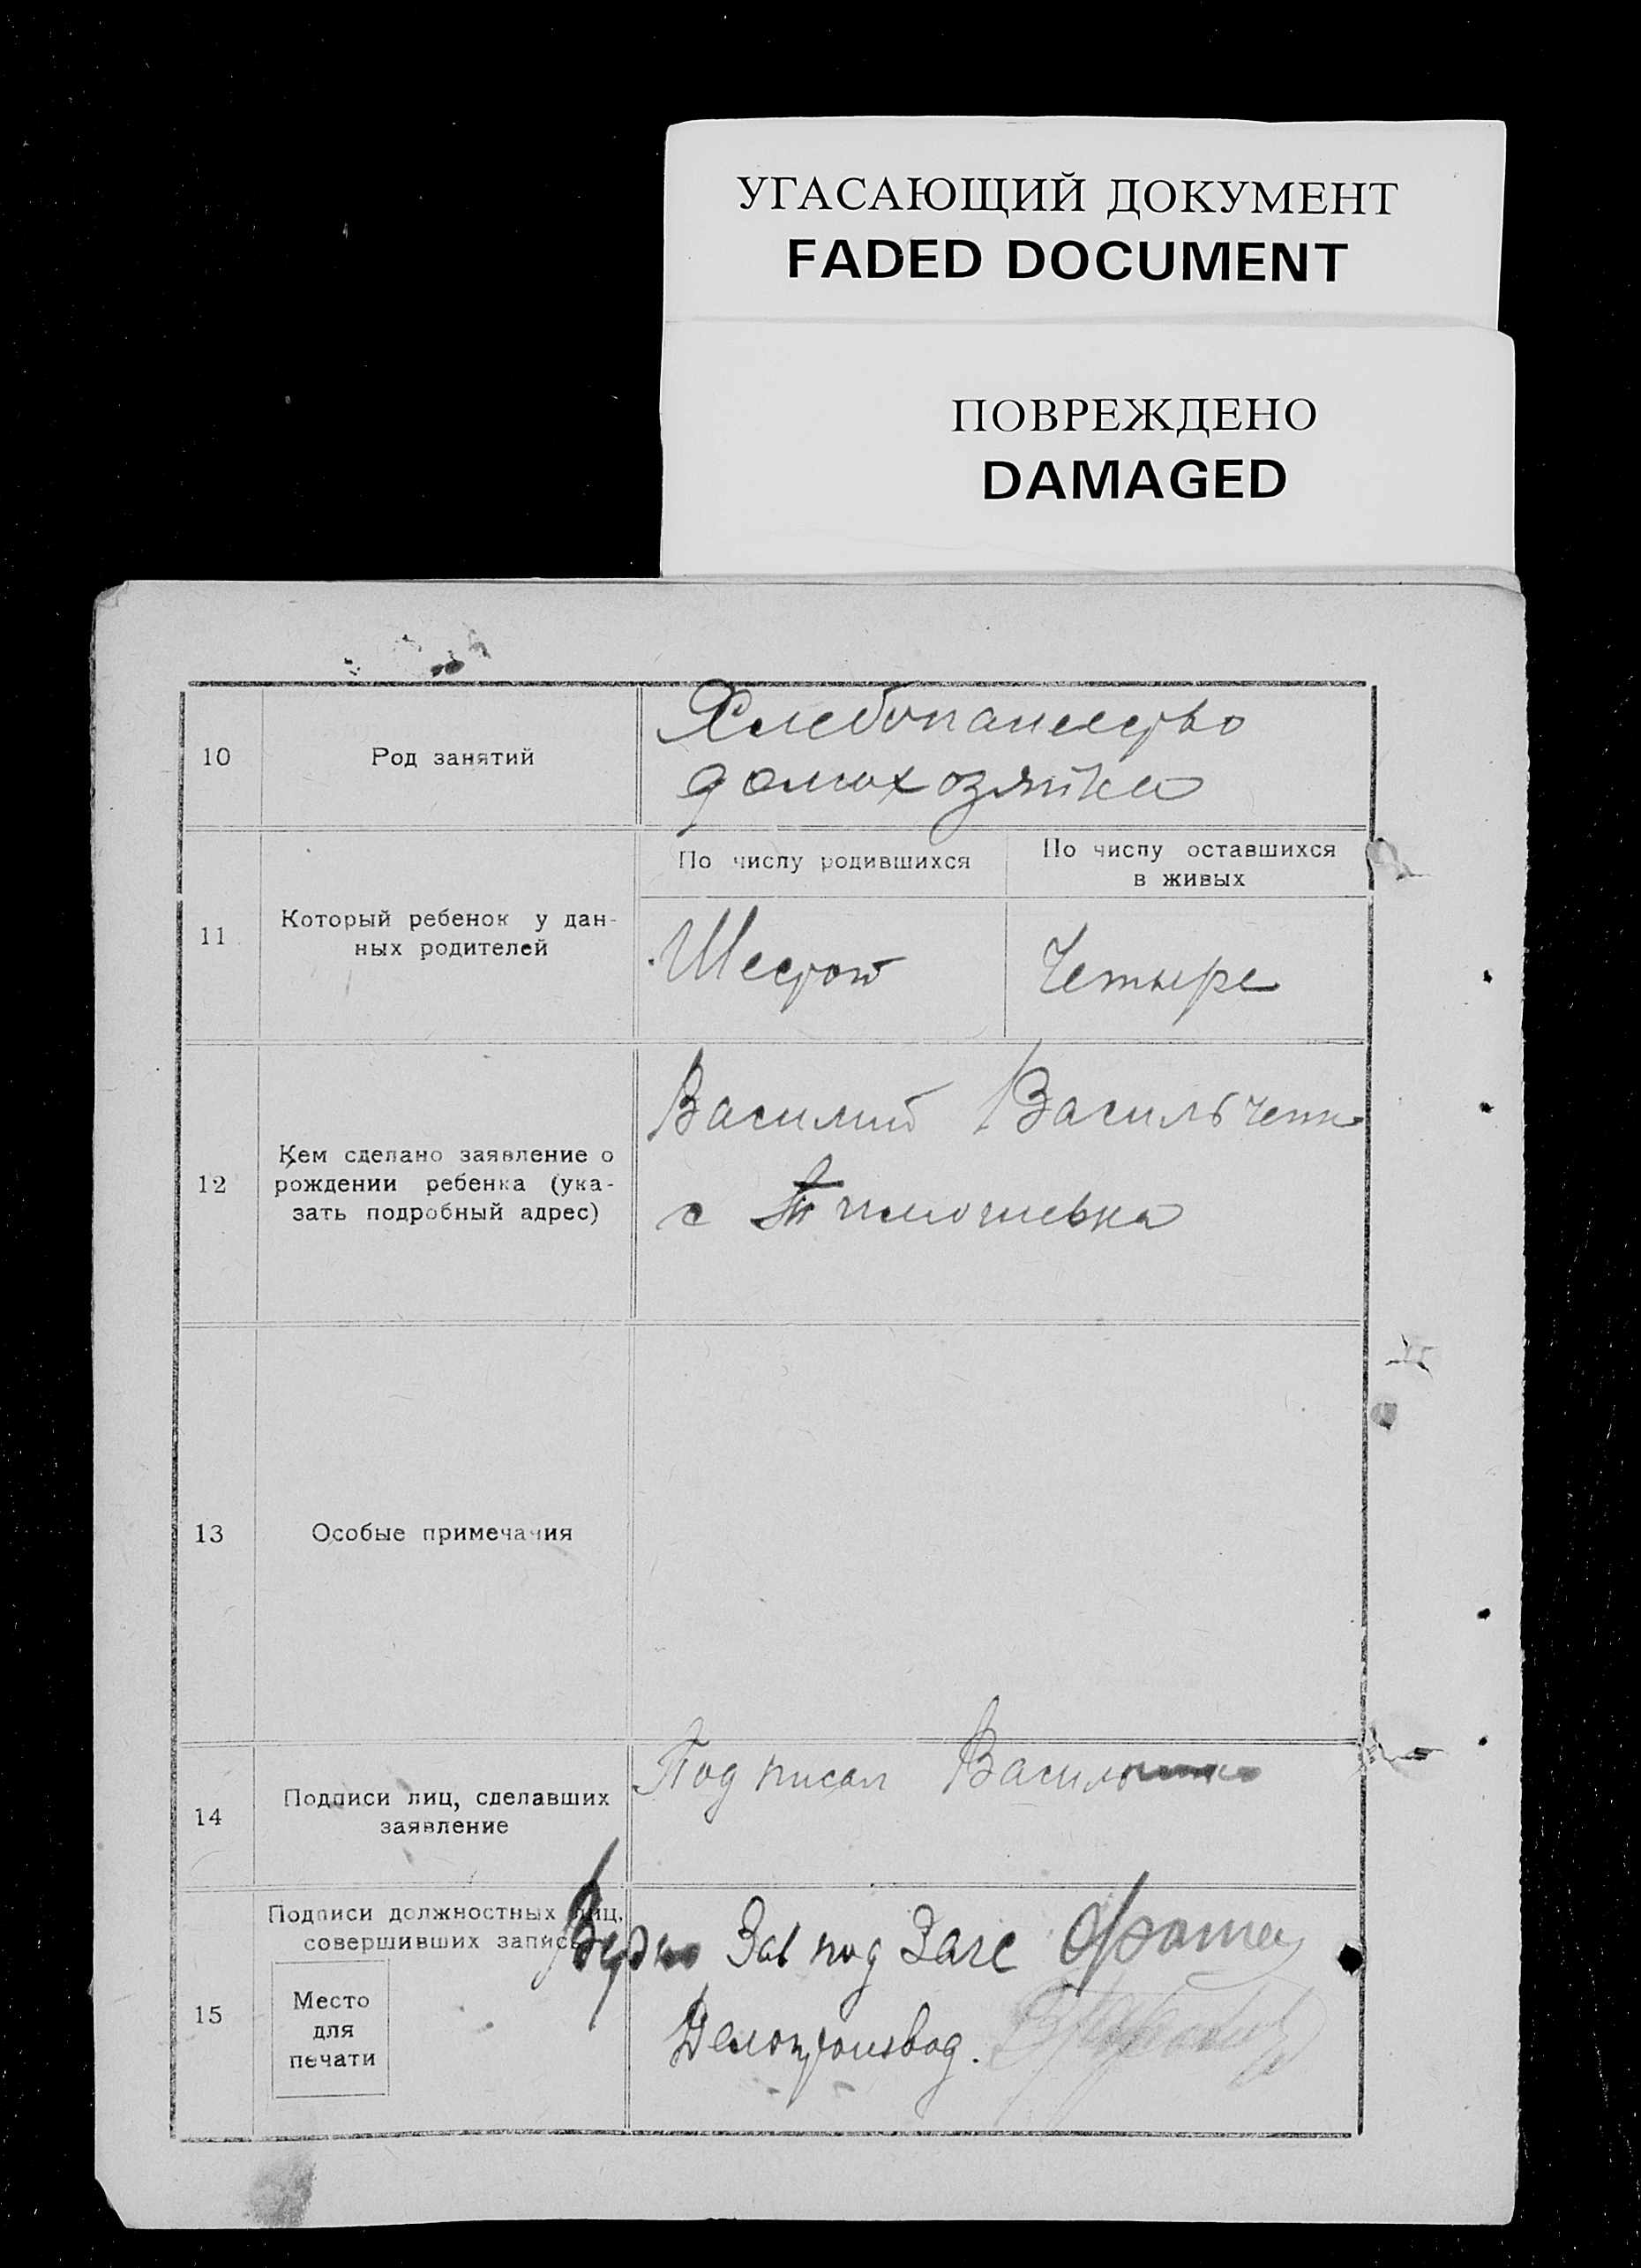 УГАСАЮЩИЙ ДОКУМЕНТ
FADED DOCUMENT
ПОВРЕЖДЕНО
DAMAGED
10
Род занятий
Хлебопашество
домохозяйка
11
Который ребенок у дан-
ных родителей
По числу родившихся
По числу оставшихся
в живых
Шестой
Четыре
12
Кем сделано заявление о
рождении ребенка (ука-
зать подробный адрес)
Василий Васильченко
с Тимошевка
13
Особые примечания
14
Подписи лиц, сделавших
заявление
Подписал
15
Подписи должностных лиц,
совершивших запись
Место
для
печати
Верно Зав под Загс
Делопроизвод.